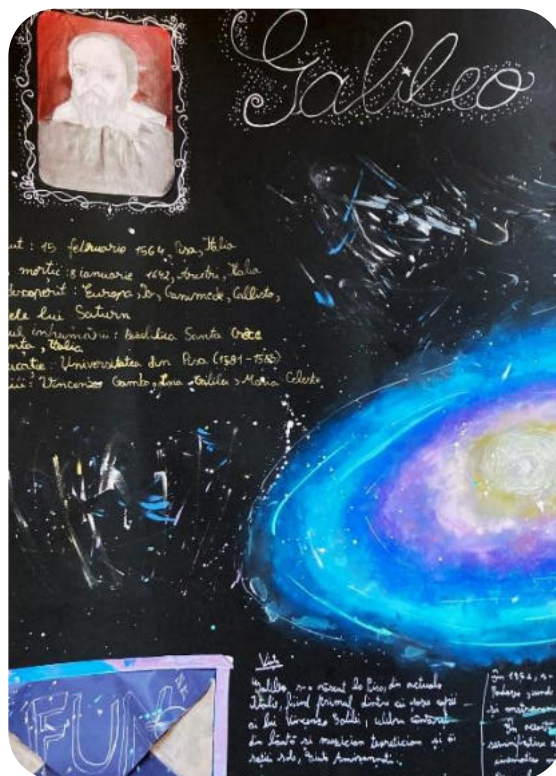 Galileo
ut : 15 februarie 1564, Pisa, Italia
morții : 8 ianuarie 1642, Arcetri, Italia
descoperit : Europa, Io, Ganimede, Callisto,
ele lui Saturn
ul înhumării : Basilica Santa Croce
Italia
: Universitatea din Pisa (1581-1585)
iii : Vincenzo Gamba, Livia Galilei, Maria Celeste
FUN
Galileo, s-a născut la Pisa, în actuala
Italie, fiind primul dintre cei șase copii
ai lui Vincenzo Galilei, celebru
din lăută și muzician teoretician și ai
soției sale, Giulia Ammannati.
În
și
În